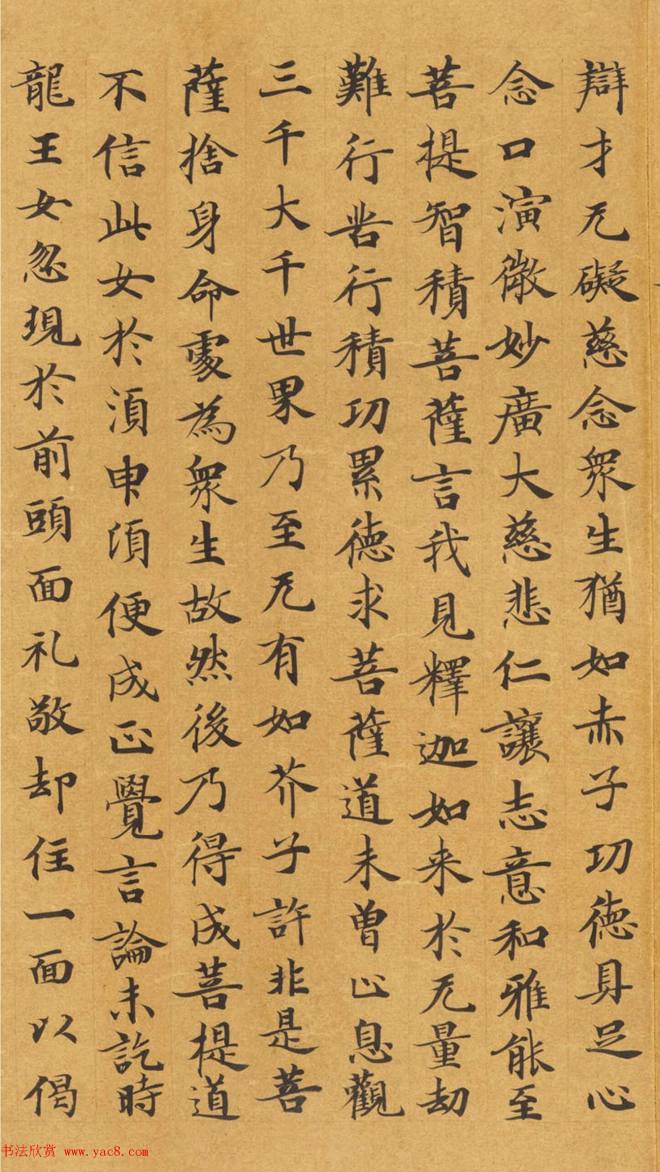 辯才无礙慈念衆生猶如赤子功德具足心
念口演微妙廣大慈悲仁讓志意和雅能至
菩提智積菩薩言我見釋迦如来於无量劫
難行苦行積功累德求菩薩道未曾止息觀
三千大千世界乃至无有如芥子許非是菩
薩捨身命處為衆生故然後乃得成菩提道
不信此女於湏申湏便成正覺言論未訖時
龍王女忽現於前頭面礼敬却住一面以偈
书法欣赏 www.yac8.com